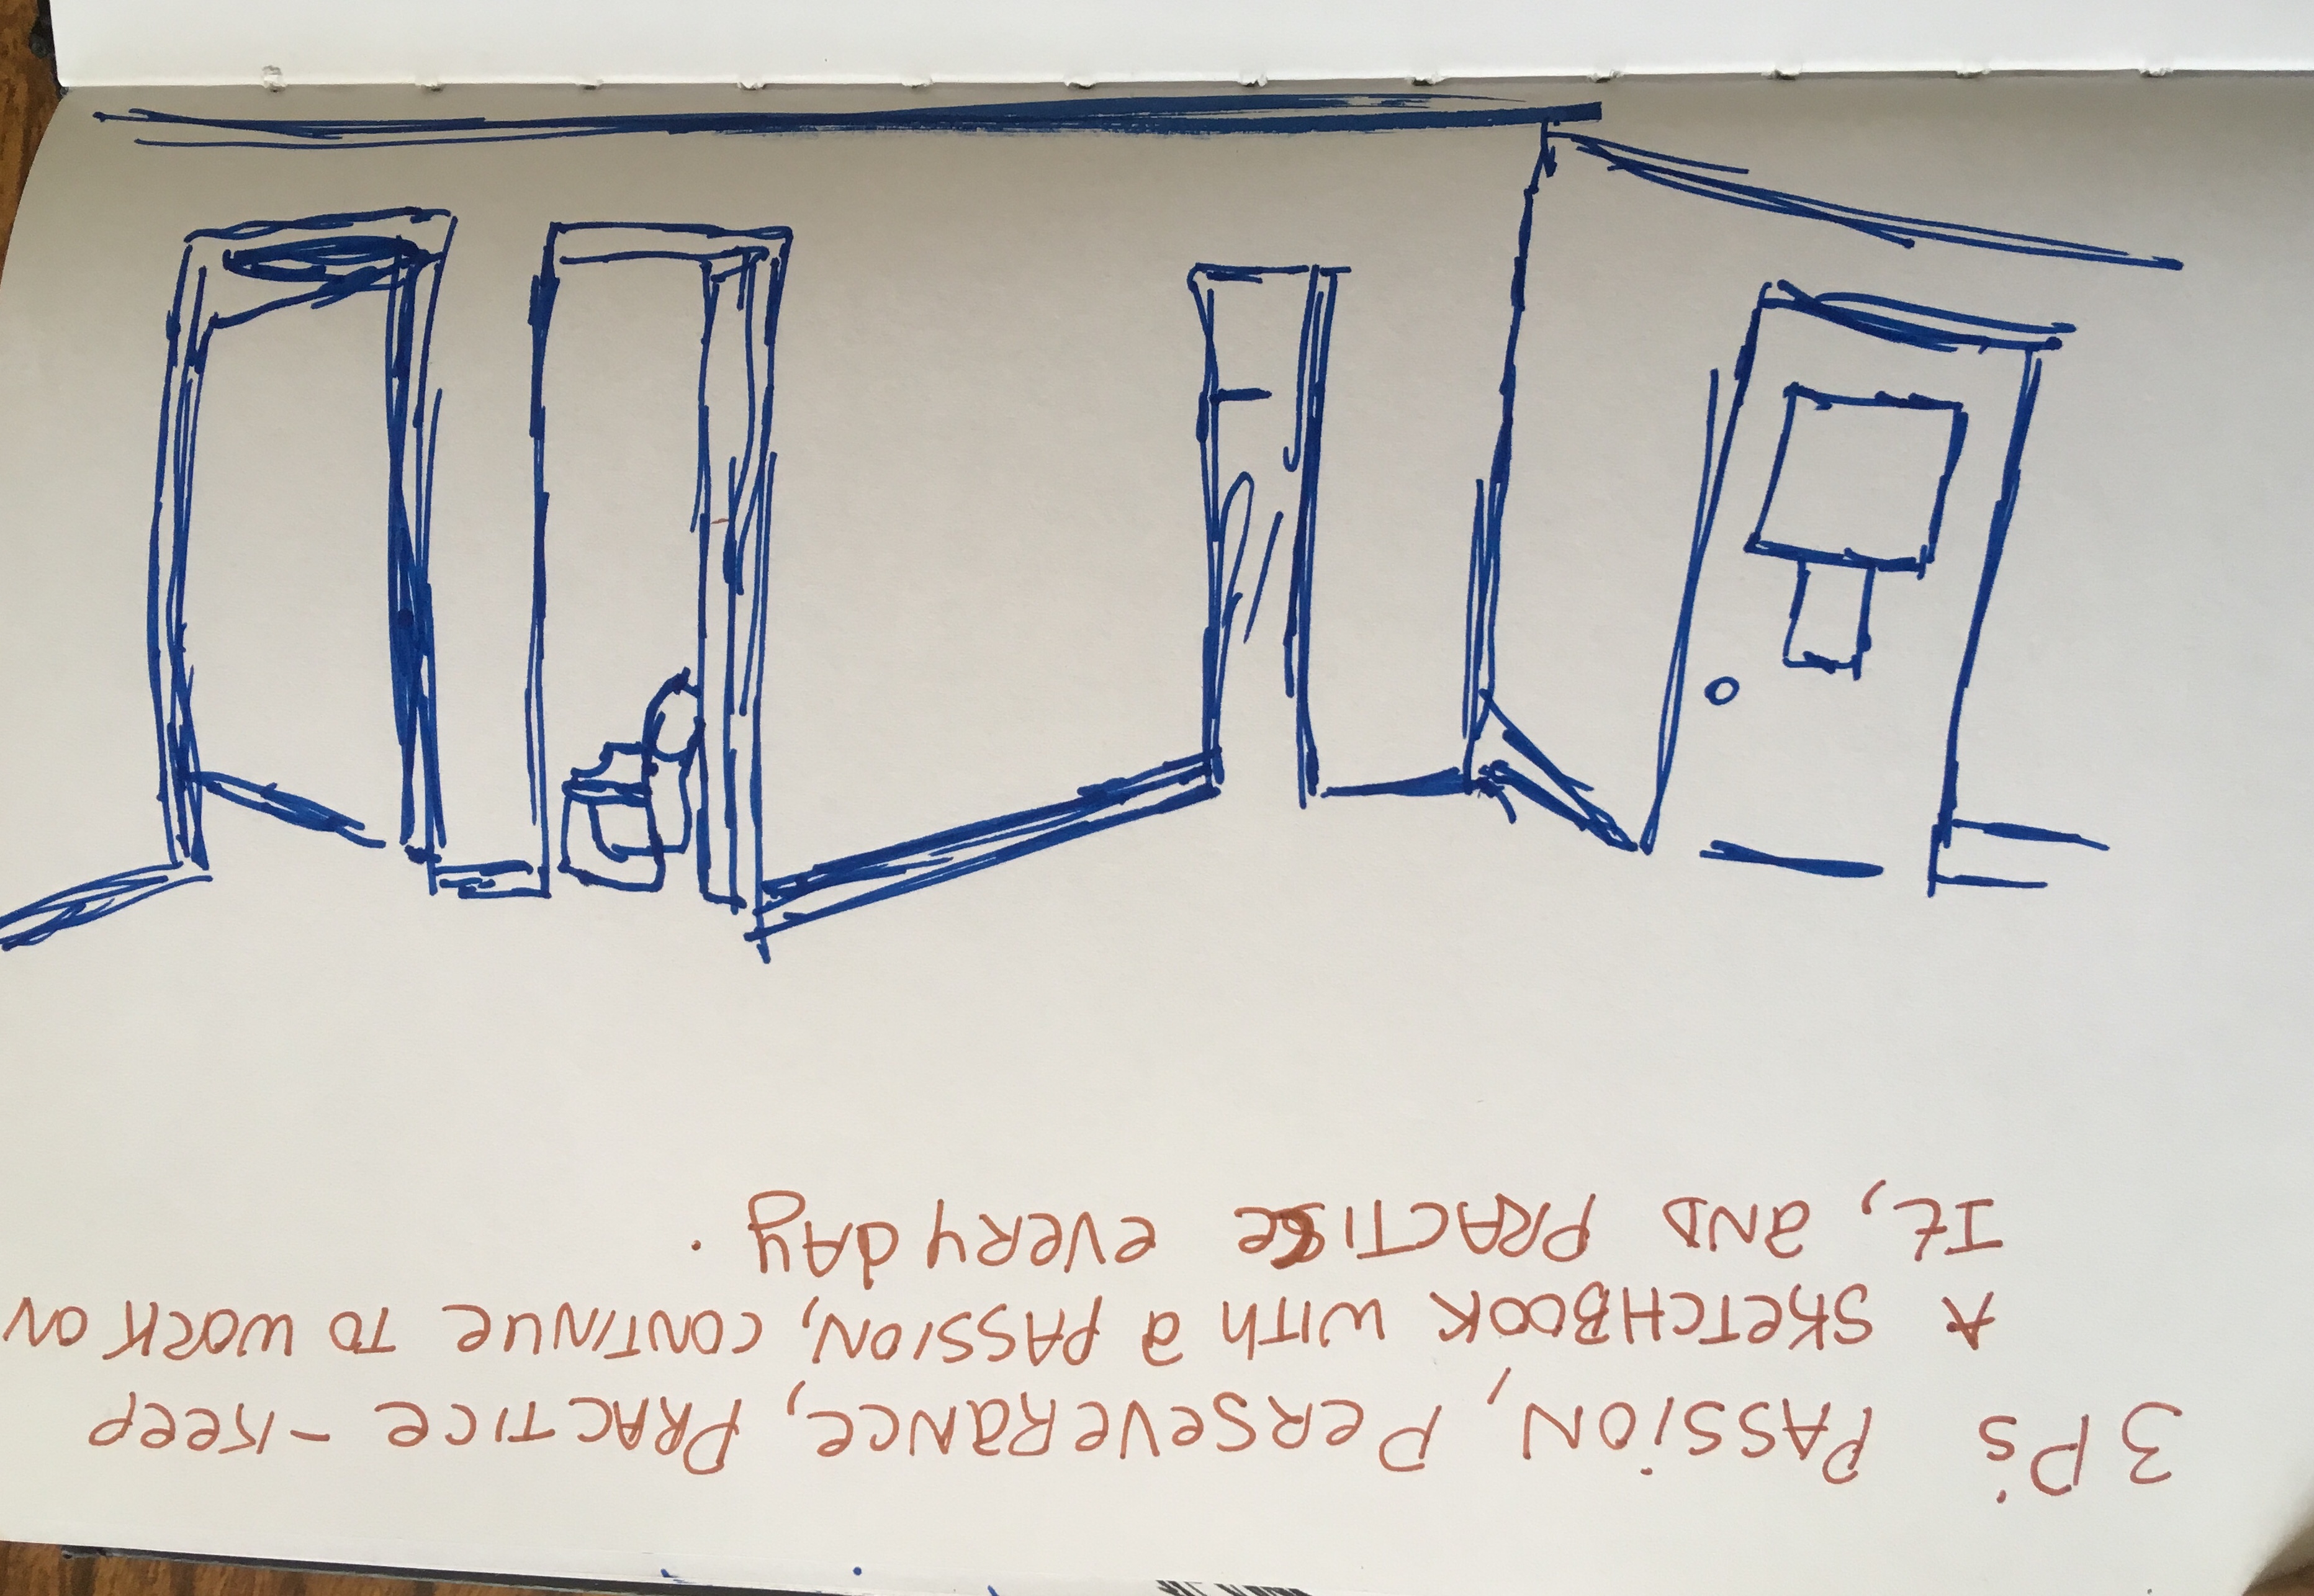 3 P's PASSION, PERSEVERANCE, PRACTICE - KEEP
A SKETCHBOOK WITH a PASSION, CONTINUE TO WORK ON
It, and PRACTISE EVERYDAY.